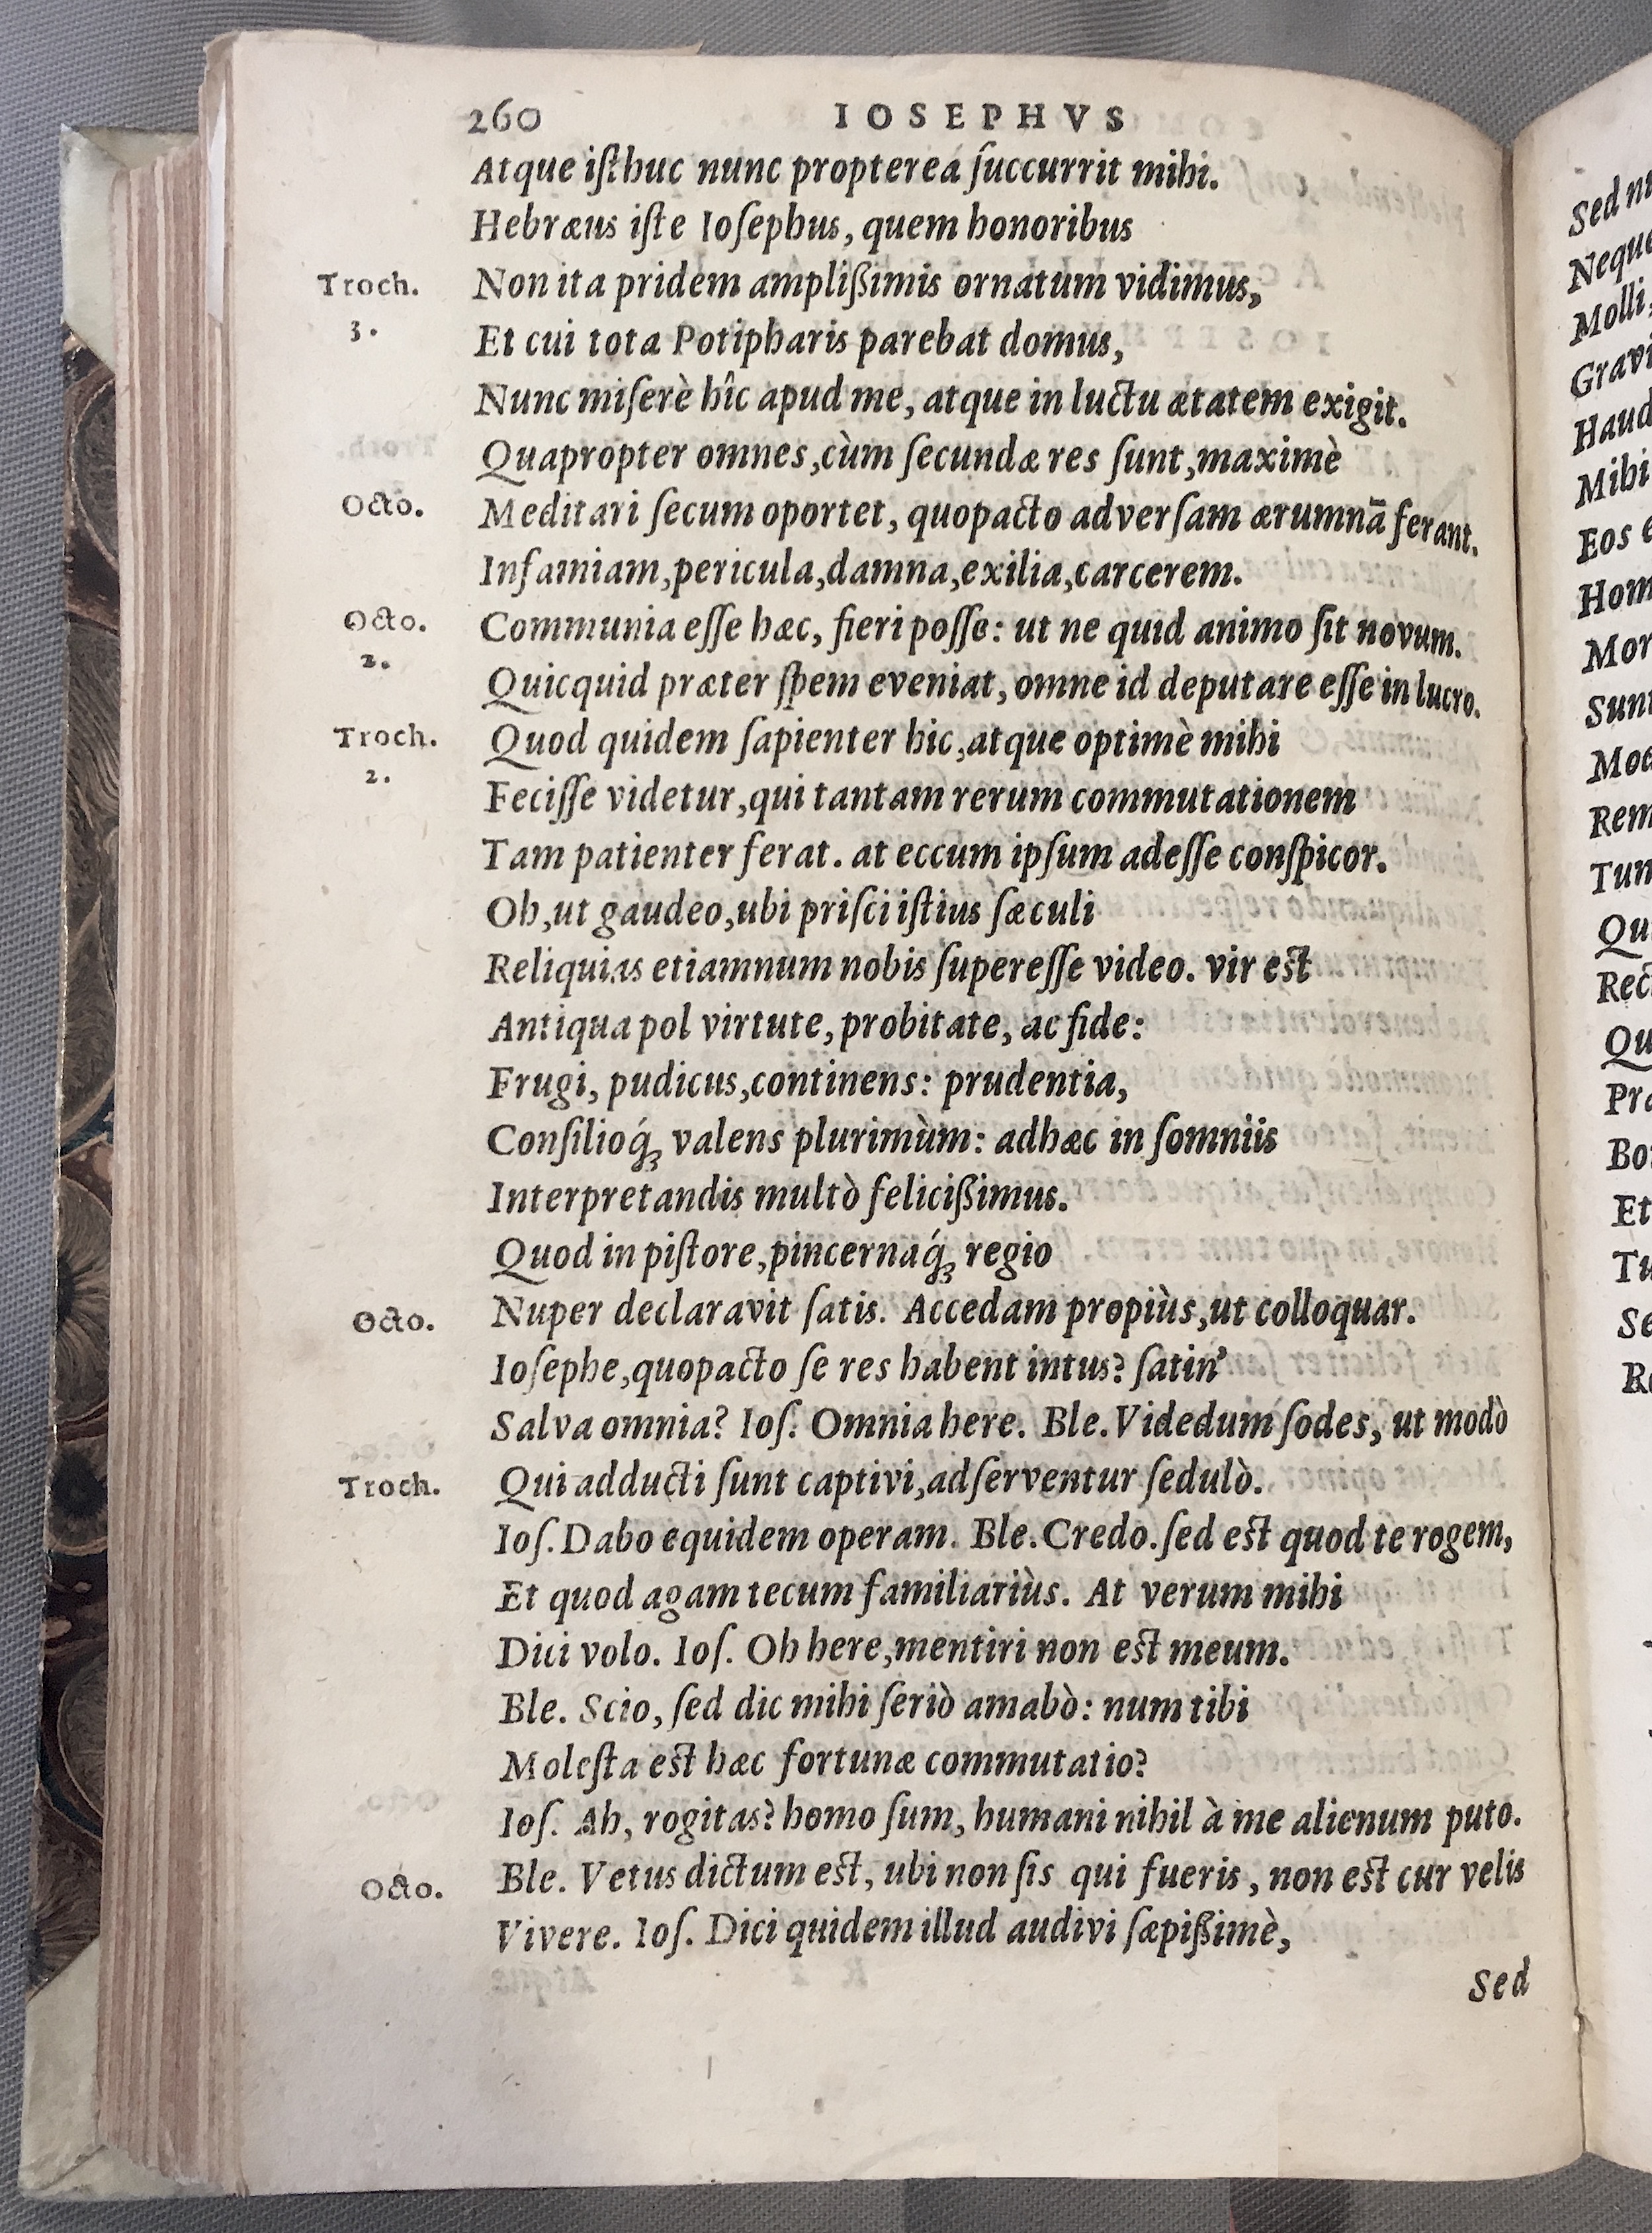 260 IOSEPHVS
Atque isthuc nunc propterea succurrit mihi.
Hebræus iste Iosephus, quem honoribus
Troch. Non ita pridem amplißimis ornatum vidimus,
3. Et cui tota Potipharis parebat domus,
Nunc miserè hîc apud me, atque in luctu ætatem exigit.
Quapropter omnes, cùm secundæ res sunt, maximè
Octo. Meditari secum oportet, quopacto adversam ærumnā ferant.
Infamiam, pericula, damna, exilia, carcerem.
Octo. Communia esse hæc, fieri posse: ut ne quid animo sit novum.
2. Quicquid præter spem eveniat, omne id deputare esse in lucro.
Troch. Quod quidem sapienter hic, atque optimè mihi
2. Fecisse videtur, qui tantam rerum commutationem
Tam patienter ferat. at eccum ipsum adesse conspicor.
Oh, ut gaudeo, ubi prisci istius sæculi
Reliquias etiamnum nobis superesse video. vir est
Antiqua pol virtute, probitate, ac fide:
Frugi, pudicus, continens: prudentia,
Consilioq́; valens plurimùm: adhæc in somniis
Interpretandis multò felicißimus.
Quod in pistore, pincernaq́; regio
Octo. Nuper declaravit satis. Accedam propiùs, ut colloquar.
Iosephe, quopacto se res habent intus? satin'
Salva omnia? Ios. Omnia here. Ble. Videdum sodes, ut modò
Troch. Qui adducti sunt captivi, adserventur sedulò.
Ios. Dabo equidem operam. Ble. Credo. sed est quod te rogem,
Et quod agam tecum familiariùs. At verum mihi
Dici volo. Ios. Oh here, mentiri non est meum.
Ble. Scio, sed dic mihi seriò amabò: num tibi
Molesta est hæc fortunæ commutatio?
Ios. Ah, rogitas? homo sum, humani nihil à me alienum puto.
Octo. Ble. Vetus dictum est, ubi non sis qui fueris, non est cur velis
Vivere. Ios. Dici quidem illud audivi sæpißimè,
Sed